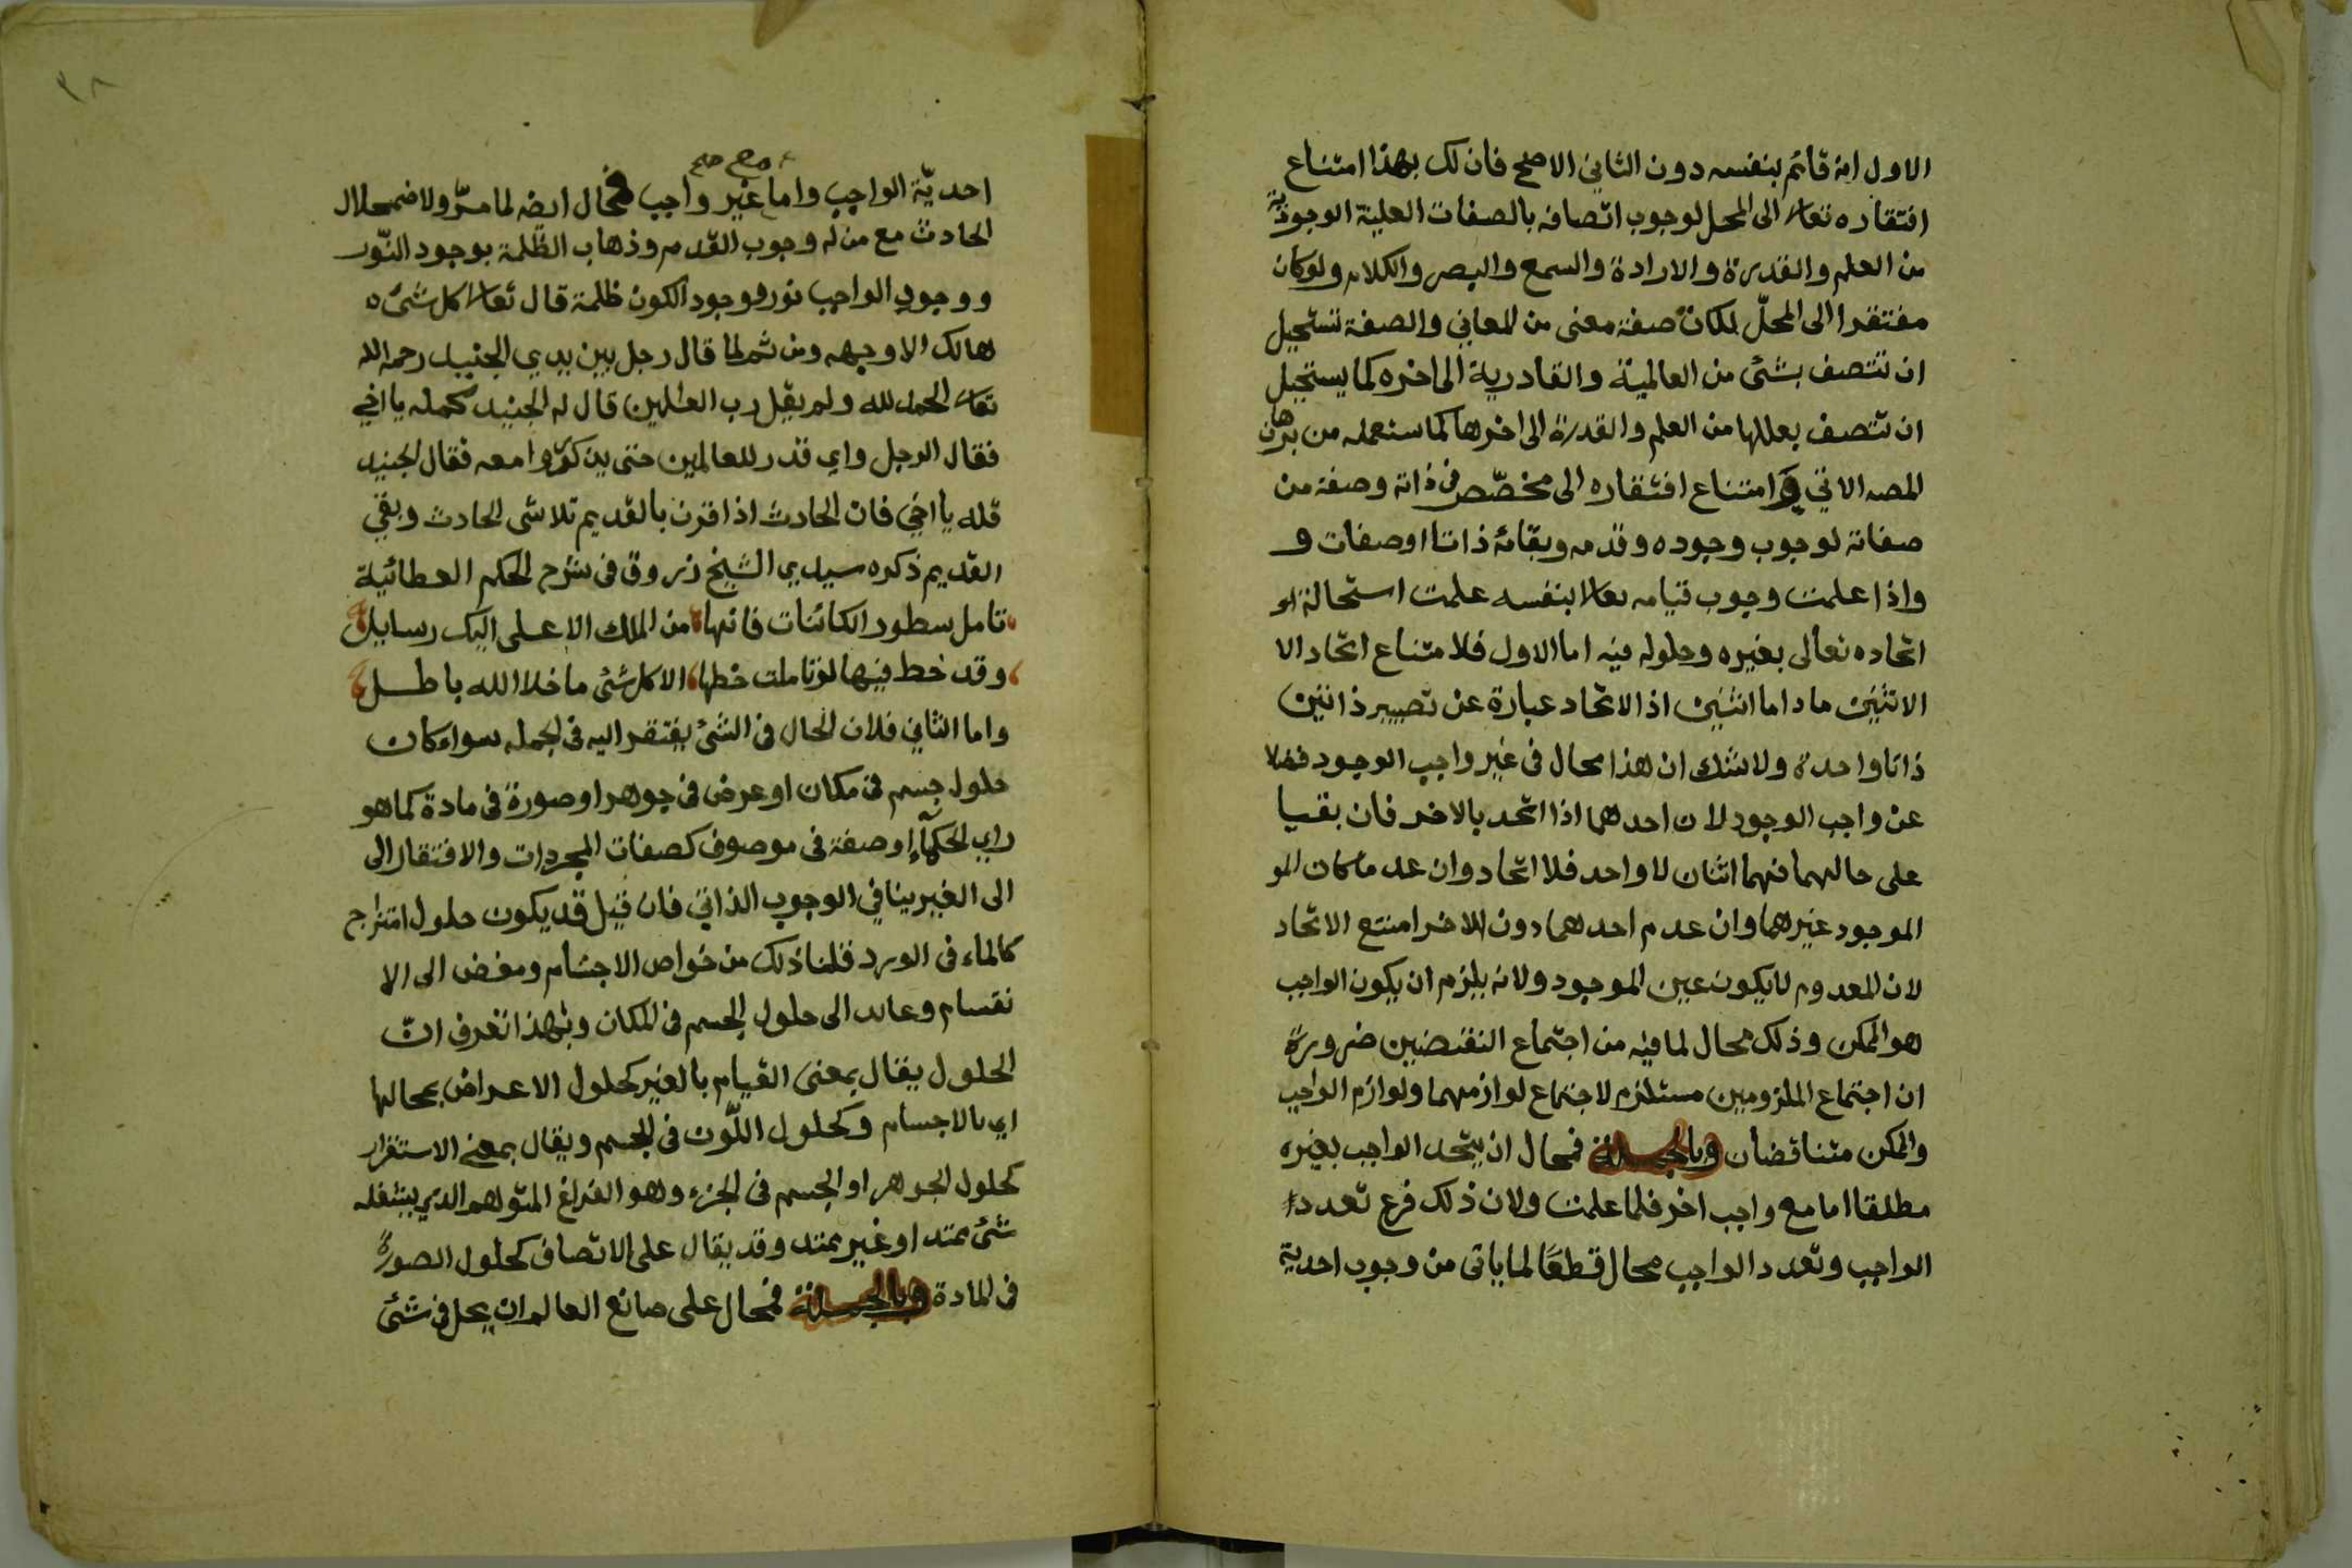 الاول انه قائم بنفسه دون الثاني الاصح فان لك بهذا امتناع
افتقاره تعالى الى المحل لوجوب اتصافه بالصفات العلية الوجودية
من العلم والقدرة والارادة والسمع والبصر والكلام ولو كان
مفتقرا الى المحلّ لكان صفة معنى من المعاني والصفة تستحيل
ان تتصف بشئ من العالمية والقادرية الى اخره كما يستحيل
ان تتصف بعللها من العلم والقدرة الى اخرها كما ستعمله من برهان
المصه الاتي و امتناع افتقاره الى مخصّص في ذاته وصفة من
صفاته لوجوب وجوده وقدمه وبقائه ذاتا اوصفات و
واذا علمت وجوب قيامه تعالى بنفسه علمت استحالة او
اتحاده تعالى بغيره وحلوله فيه اما الاول فلامتناع اتحاد الا
الاثنين ما داما اثنين اذ الاتحاد عبارة عن تصيير ذاتين
ذاتا واحدة ولا شك ان هذا محال في غير واجب الوجود فضلا
عن واجب الوجود لان احدهما اذا اتحد بالاخر فان بقيا
على حالهما فهما اثنان لا واحد فلا اتحاد وان عدما كان المو
الموجود غيرهما وان عدم احدهما دون الاخر امتنع الاتحاد
لان المعدوم لا يكون عين الموجود ولانه يلزم ان يكون الواجب
هو الممكن وذلك محال لما فيه من اجتماع النقيضين ضرورة
ان اجتماع الملزومين مستلزم لاجتماع لوازمهما ولوازم الواجب
والممكن متناقضان وبالجملة فمحال ان يتحد الواجب بغيره
مطلقا اما مع واجب اخر فلما علمت ولان ذلك فرع تعدد
الواجب وتعدد الواجب محال قطعًا لما ياتى من وجوب احدية
٣٨
مع صح
احديّة الواجب واما غير واجب فمحال ايضه لما مرّ ولاضمحلال
الحادث مع من له وجوب القدم وذهاب الظّلمة بوجود النّور
ووجود الواجب نور ووجود الكون ظلمة قال تعالى كل شئ ه
هالك الا وجهه ومن ثم لما قال رجل بين يدي الجنيد رحمه الله
تعالى الحمد لله ولم يقل رب العالمين قال له الجنيد كمله يا اخي
فقال الرجل واي قدر للعالمين حتى يذكروا معه فقال الجنيد
قله يا اخي فان الحادث اذا قرن بالقديم تلاشى الحادث وبقي
القديم ذكره سيدي الشيخ زروق في شرح الحكم العطائية
تامل سطور الكائنات فانها من الملك الاعلى اليك رسايل
وقد خط فيها لو تاملت خطها الا كل شئ ما خلا الله باطل
واما الثاني فلان الحال في الشئ يفتقر اليه في الجملة سواء كان
حلول جسم في مكان او عرض في جوهر او صورة في مادة كما هو
راي الحكماء او صفة في موصوف كصفات المجردات والافتقار الى
الى الغير ينافي الوجوب الذاتي فان قيل قد يكون حلول امتزاج
كالماء في الورد قلنا ذلك من خواص الاجسام ومفض الى الا
نقسام وعائد الى حلول الجسم في المكان وبهذا تعرف انّ
الحلول يقال بمعنى القيام بالغير كحلول الاعراض بمحالها
اي بالاجسام وكحلول اللّون في الجسم ويقال بمعنى الاستقرار
كحلول الجوهر او الجسم في الجزء وهو الفراغ المتوهم الذي يشغله
شئ ممتد او غير ممتد وقد يقال على الاتصاف كحلول الصورة
في المادة وبالجملة فمحال على صانع العالم ان يحل في شئ